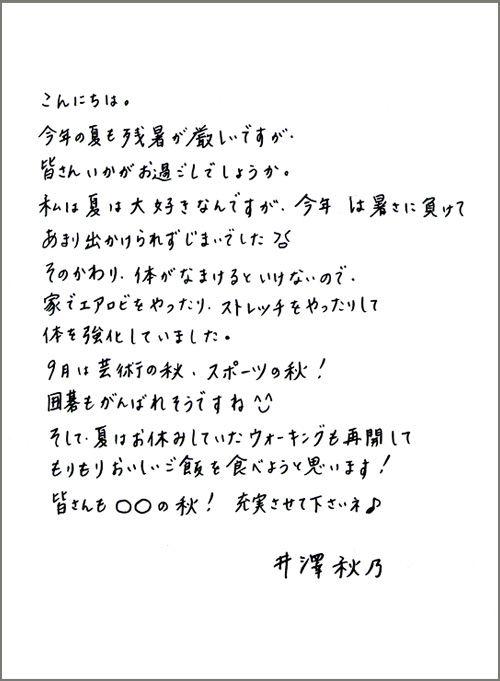 こんにちは。
今年の夏も残暑が厳しいですが、
皆さんいかがお過ごしでしょうか。
私は夏は大好きなんですが、今年 は暑さに負けて
あまり出かけられずじまいでした
そのかわり、体がなまけるといけないので、
家でエアロビをやったり、ストレッチをやったりして
体を強化していました。
9月は芸術の秋、スポーツの秋！
囲碁もがんばれそうですね^^
そして、夏はお休みしていたウォーキングも再開して
もりもりおいしいご飯を食べようと思います！
皆さんも ○○の秋！ 充実させて下さいネ♪
井澤秋乃